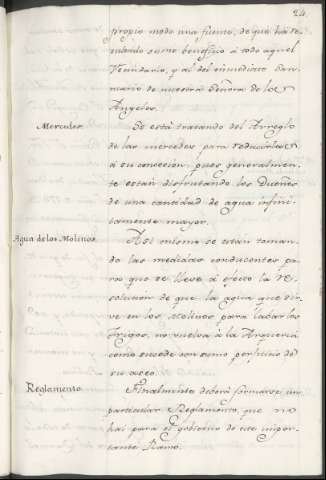 24.
propio modo una fuente, de que há re-
sultando sumo beneficio á todo aquel
Vecindario, y al del inmediato San-
tuario de nuestra Señora de los
Angeles.
Mercedes.
Se está tratando del Arreglo
de las mercedes para reducirlas
á su concesion, pues generalmen-
te estan disfrutando los Dueños
de una cantidad de agua infini-
tamente mayor.
Agua de los Molinos.
Asi mismo se están toman-
do las medidas conducentes pa-
ra que se lleve á efecto la re-
solucion de que la agua que sir-
ve en los Molinos para labar los
Trigos, no vuelva á la Arquería
como sucede con sumo perjuicio de
su aseo.
Reglamento.
Finalmente deberá formarse un
particular Reglamento, que no
hai para el gobierno de este impor-
tante Ramo.